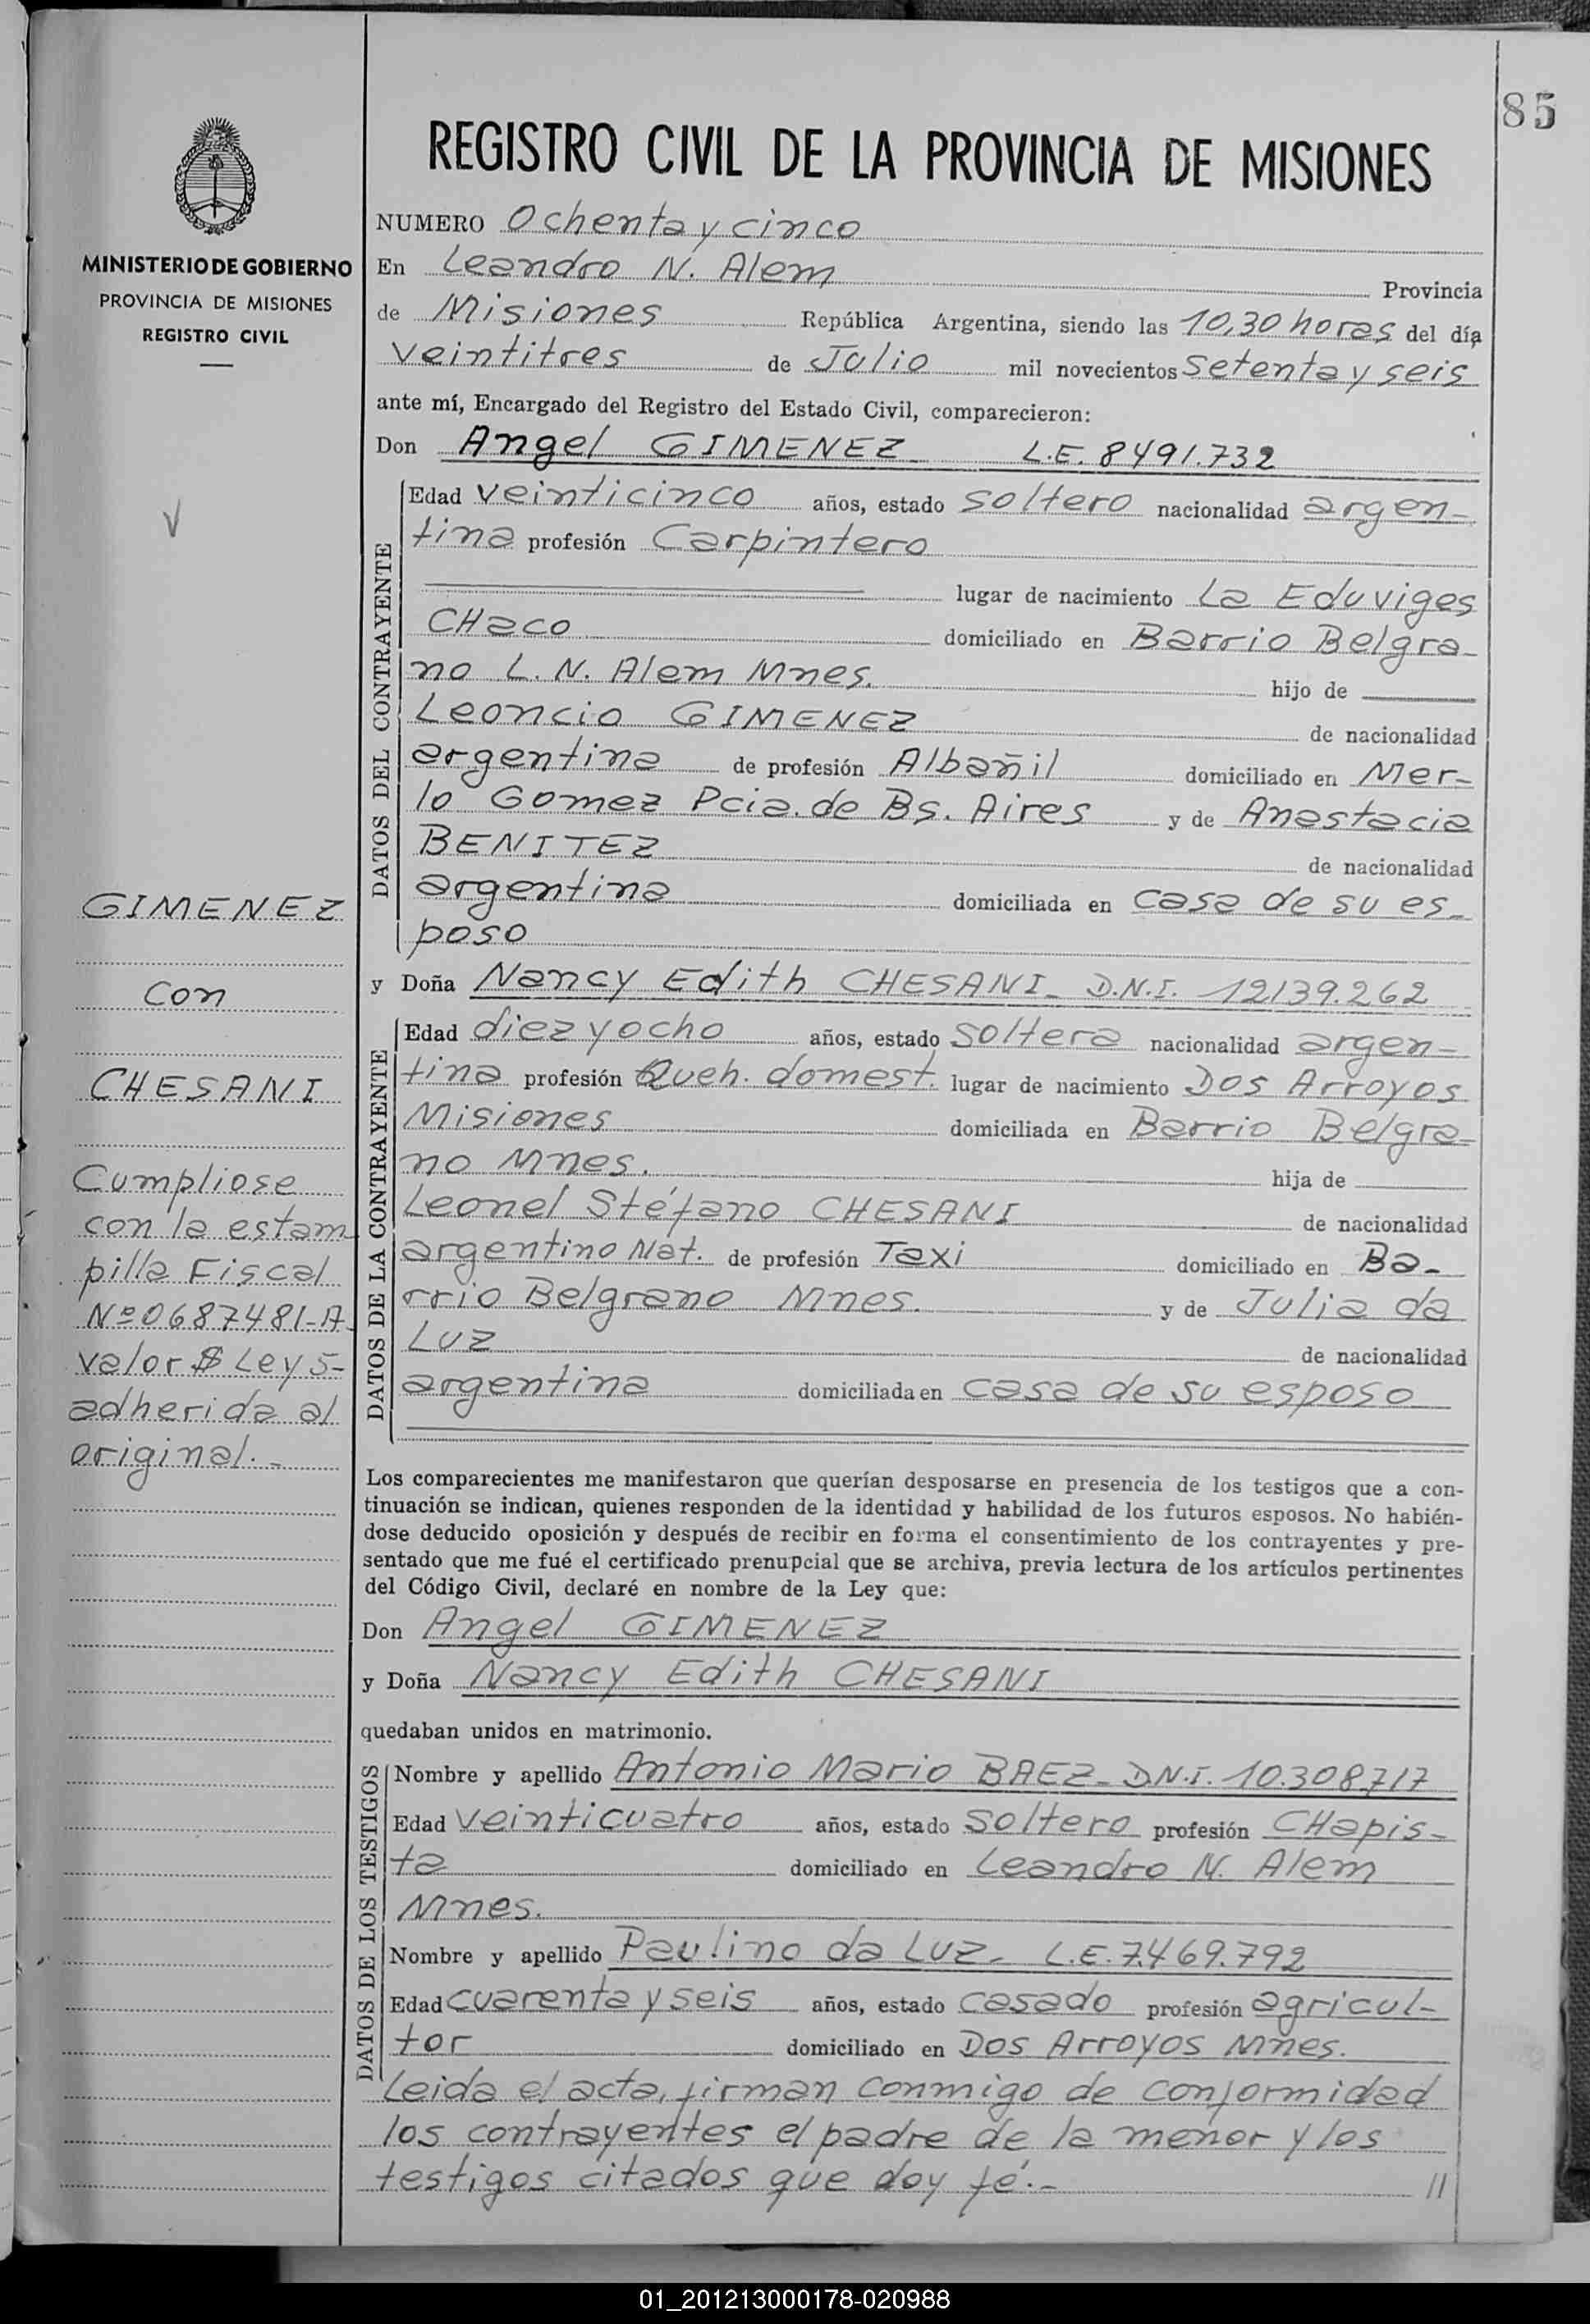 85
REGISTRO CIVIL DE LA PROVINCIA DE MISIONES
MINISTERIO DE GOBIERNO
PROVINCIA DE MISIONES
REGISTRO CIVIL
NUMERO Ochenta y cinco
En Leandro N. Alem Provincia
de Misiones República Argentina, siendo las 10,30 horas del día
veintitres de Julio mil novecientos setenta y seis
ante mí, Encargado del Registro del Estado Civil, comparecieron:
Don Angel GIMENEZ L.E. 8491.732
DATOS DEL CONTRAYENTE
Edad veinticinco años, estado soltero nacionalidad argen-
tina profesión Carpintero
lugar de nacimiento La Eduviges
CHaco domiciliado en Barrio Belgra-
no L. N. Alem Mnes. hijo de
Leoncio GIMENEZ de nacionalidad
argentina de profesión Albañil domiciliado en Mer-
lo Gomez Pcia. de Bs. Aires y de Anastacia
BENITEZ de nacionalidad
argentina domiciliada en casa de su es-
poso
y Doña Nancy Edith CHESANI- D.N.I. 12139.262
DATOS DE LA CONTRAYENTE
Edad diez y ocho años, estado soltera nacionalidad argen-
tina profesión Queh. domest. lugar de nacimiento Dos Arroyos
Misiones domiciliada en Barrio Belgra-
no Mnes. hija de
Leonel Stéfano CHESANI de nacionalidad
argentino Nat. de profesión Taxi domiciliado en Ba-
rrio Belgrano Mnes. y de Julia da
Luz de nacionalidad
argentina domiciliada en casa de su esposo
GIMENEZ
con
CHESANI
Cumpliose
con la estam
pilla Fiscal
Nº 0687481-A
valor $ Ley 5-
adherida al
original.-
Los comparecientes me manifestaron que querían desposarse en presencia de los testigos que a con-
tinuación se indican, quienes responden de la identidad y habilidad de los futuros esposos. No habién-
dose deducido oposición y después de recibir en forma el consentimiento de los contrayentes y pre-
sentado que me fué el certificado prenupcial que se archiva, previa lectura de los artículos pertinentes
del Código Civil, declaré en nombre de la Ley que:
Don Angel GIMENEZ
y Doña Nancy Edith CHESANI
quedaban unidos en matrimonio.
DATOS DE LOS TESTIGOS
Nombre y apellido Antonio Mario BAEZ- D.N.I. 10.308.717
Edad veinticuatro años, estado soltero profesión CHapis-
ta domiciliado en Leandro N. Alem
Mnes.
Nombre y apellido Paulino da Luz- L.E. 7.469.792
Edad cuarenta y seis años, estado casado profesión agricul-
tor domiciliado en Dos Arroyos Mnes.
Leida el acta, firman conmigo de conformidad
los contrayentes el padre de la menor y los
testigos citados que doy fé.- //
01_201213000178-020988